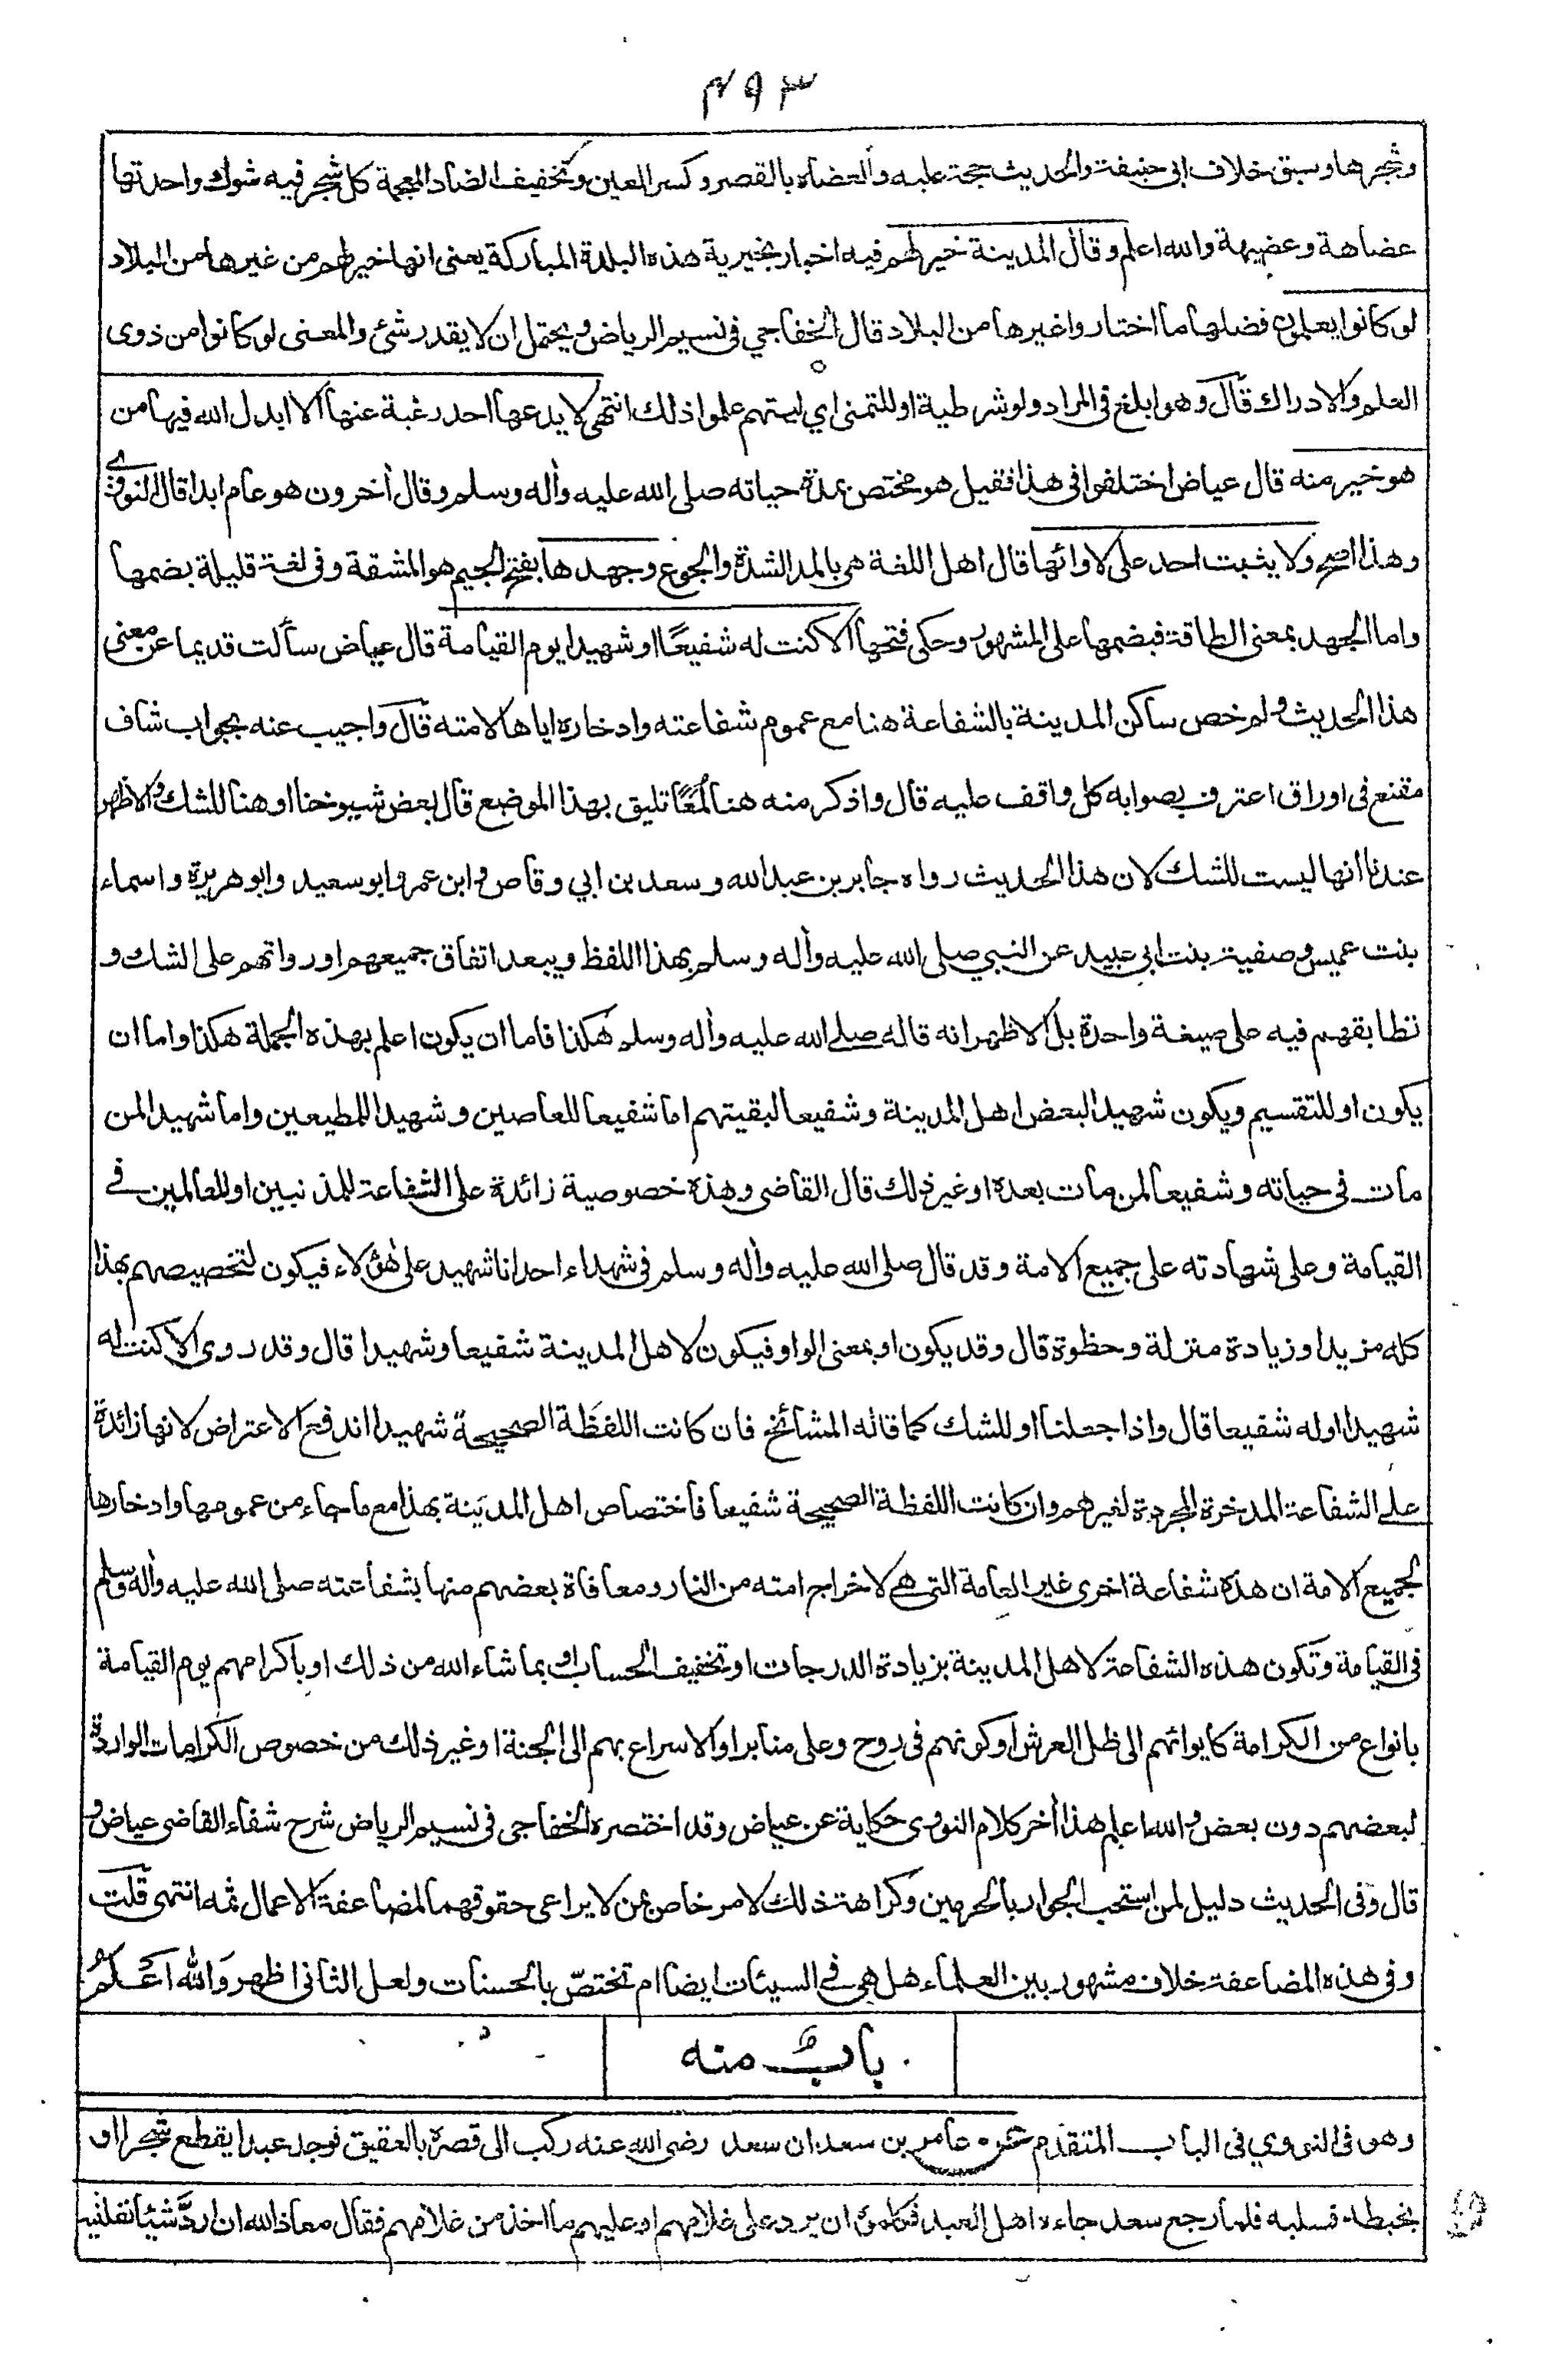 ٤٩٣
وشجرها وسبق خلاف ابي حنيفة والحديث حجة عليه والعضاه بالقصر وكسر العين وتخفيف الضاد المعجمة كل شجر فيه شوك واحدتها
عضاهة وعضيهة والله اعلم وقال المدينة خير لهم فيه اخبار بخيرية هذه البلدة المباركة يعنى انها خير لهم من غيرها من البلاد
لو كانوا يعلمون فضلها ما اختاروا غيرها من البلاد قال الخفاجي فى نسيم الرياض ويحتمل ان لا يقدر شئ والمعنى لو كانوا من ذوى
العلم والادراك قال وهو ابلغ فى المراد ولو شرطية او للتمنى اي ليتهم علموا ذلك انتهى لا يدعها احد رغبة عنها الا ابدل الله فيها من
هو خير منه قال عياض اختلفوا فى هذا فقيل هو مختص بمدة حياته صلى الله عليه وأله وسلم وقال أخرون هو عام ابدا قال النووي
وهذا اصح ولا يثبت احد على لاوائها قال اهل اللغة هى بالمد الشدة والجوع وجهدها بفتح الجيم هو المشقة وفى لغة قليلة بضمها
واما الجهد بمعنى الطاقة فبضمها على المشهور وحكى فتحها الا كنت له شفيعًا او شهيدا يوم القيامة قال عياض سألت قديما عن معنى
هذا الحديث ولم خص ساكن المدينة بالشفاعة هنا مع عموم شفاعته وادخاره اياها لامته قال واجيب عنه بجواب شاف
مقنع فى اوراق اعترف بصوابه كل واقف عليه قال واذكر منه هنا لُمَعًا تليق بهذا الموضع قال بعض شيوخنا او هنا للشك والاظهر
عندنا انها ليست للشك لان هذا الحديث رواه جابر بن عبد الله وسعد بن ابي وقاص وابن عمر وابو سعيد وابو هريرة واسماء
بنت عميس وصفية بنت ابى عبيد عن النبي صلى الله عليه وأله وسلم بهذا اللفظ ويبعد اتفاق جميعهم او رواتهم على الشك و
تطابقهم فيه على صيغة واحدة بل الاظهر انه قاله صلى الله عليه وأله وسلم هكذا فاما ان يكون اعلم بهذه الجملة هكذا واما ان
يكون او للتقسيم ويكون شهيدا لبعض اهل المدينة وشفيعا لبقيتهم اما شفيعا للعاصين وشهيدا للمطيعين واما شهيدا لمن
مات فى حياته وشفيعا لمن مات بعده او غير ذلك قال القاضى وهذه خصوصية زائدة على الشفاعة للمذنبين او للعالمين فى
القيامة وعلى شهادته على جميع الامة وقد قال صلى الله عليه وأله وسلم فى شهداء احد انا شهيد على هؤلاء فيكون لتخصيصهم بهذا
كله مزيد او زيادة منزلة وحظوة قال وقد يكون او بمعنى الواو فيكون لاهل المدينة شفيعا وشهيدا قال وقد روى الا كنت له
شهيدا او له شفيعا قال واذا جعلنا او للشك كما قاله المشائخ فان كانت اللفظة الصحيحة شهيدا اندفع الاعتراض لانها زائدة
على الشفاعة المدخرة المجردة لغيرهم وان كانت اللفظة الصحيحة شفيعا فاختصاص اهل المدينة بهذا مع ما جاء من عمومها وادخارها
لجميع الامة ان هذه شفاعة اخرى غير العامة التى هى لاخراج امته من النار ومعافاة بعضهم منها بشفاعته صلى الله عليه وأله وسلم
فى القيامة وتكون هذه الشفاعة لاهل المدينة بزيادة الدرجات او تخفيف الحساب او بما شاء الله من ذلك او باكرامهم يوم القيامة
بانواع من الكرامة كايوائهم الى ظل العرش او كونهم فى روح وعلى منابر او الاسراع بهم الى الجنة او غير ذلك من خصوص الكرامات الواردة
لبعضهم دون بعض والله اعلم هذا أخر كلام النووى حكاية عن عياض وقد اختصره الخفاجى فى نسيم الرياض شرح شفاء القاضى عياض و
قال وفى الحديث دليل لمن استحب الجوار بالحرمين وكراهة ذلك لامر خاص بمن لا يراعى حقوقهما لمضاعفة الاعمال ثمه انتهى قلت
وفى هذه المضاعفة خلاف مشهور بين العلماء هل هى فى السيئات ايضا ام تختصّ بالحسنات ولعل الثانى اظهر وَالله اَعْلَمُ
بابٌ منه
وهو فى النووي فى الباب المتقدم عن عامر بن سعد ان سعد رضى الله عنه ركب الى قصره بالعقيق فوجد عبدا يقطع شجرا او
يخبطه فسلبه فلما رجع سعد جاءه اهل العبد فكلموه ان يرد على غلامهم او عليهم ما اخذ من غلامهم فقال معاذ الله ان اردَّ شيئا نفلنيه